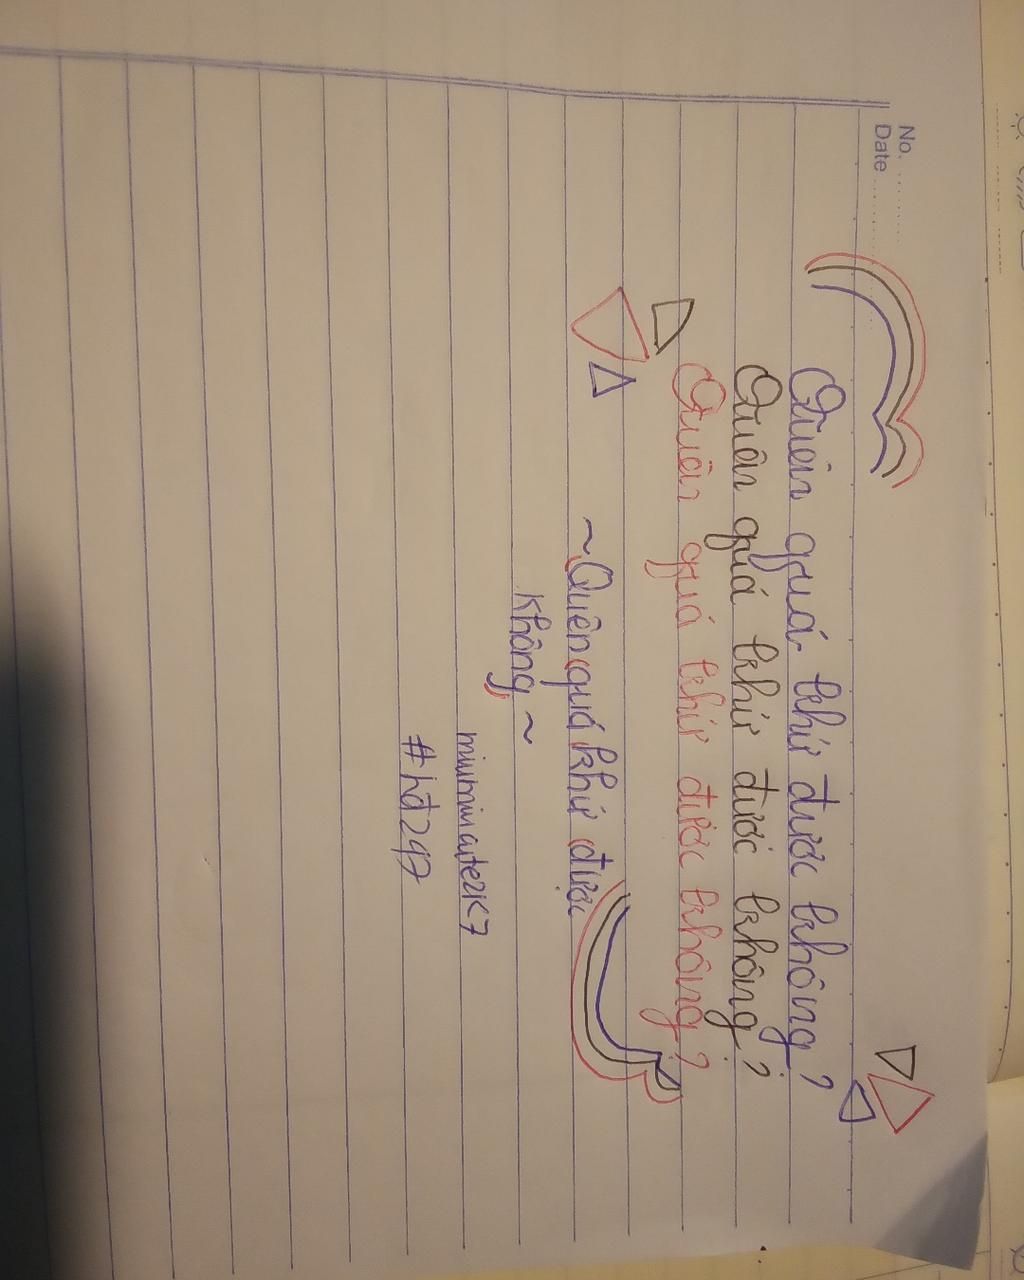 No. ..........
Date ..........
Quên quá khứ được không?
Quên quá khứ được không?
Quên quá khứ được không?
~Quên quá khứ được
không ~
miumiucute2K7
#hđ297